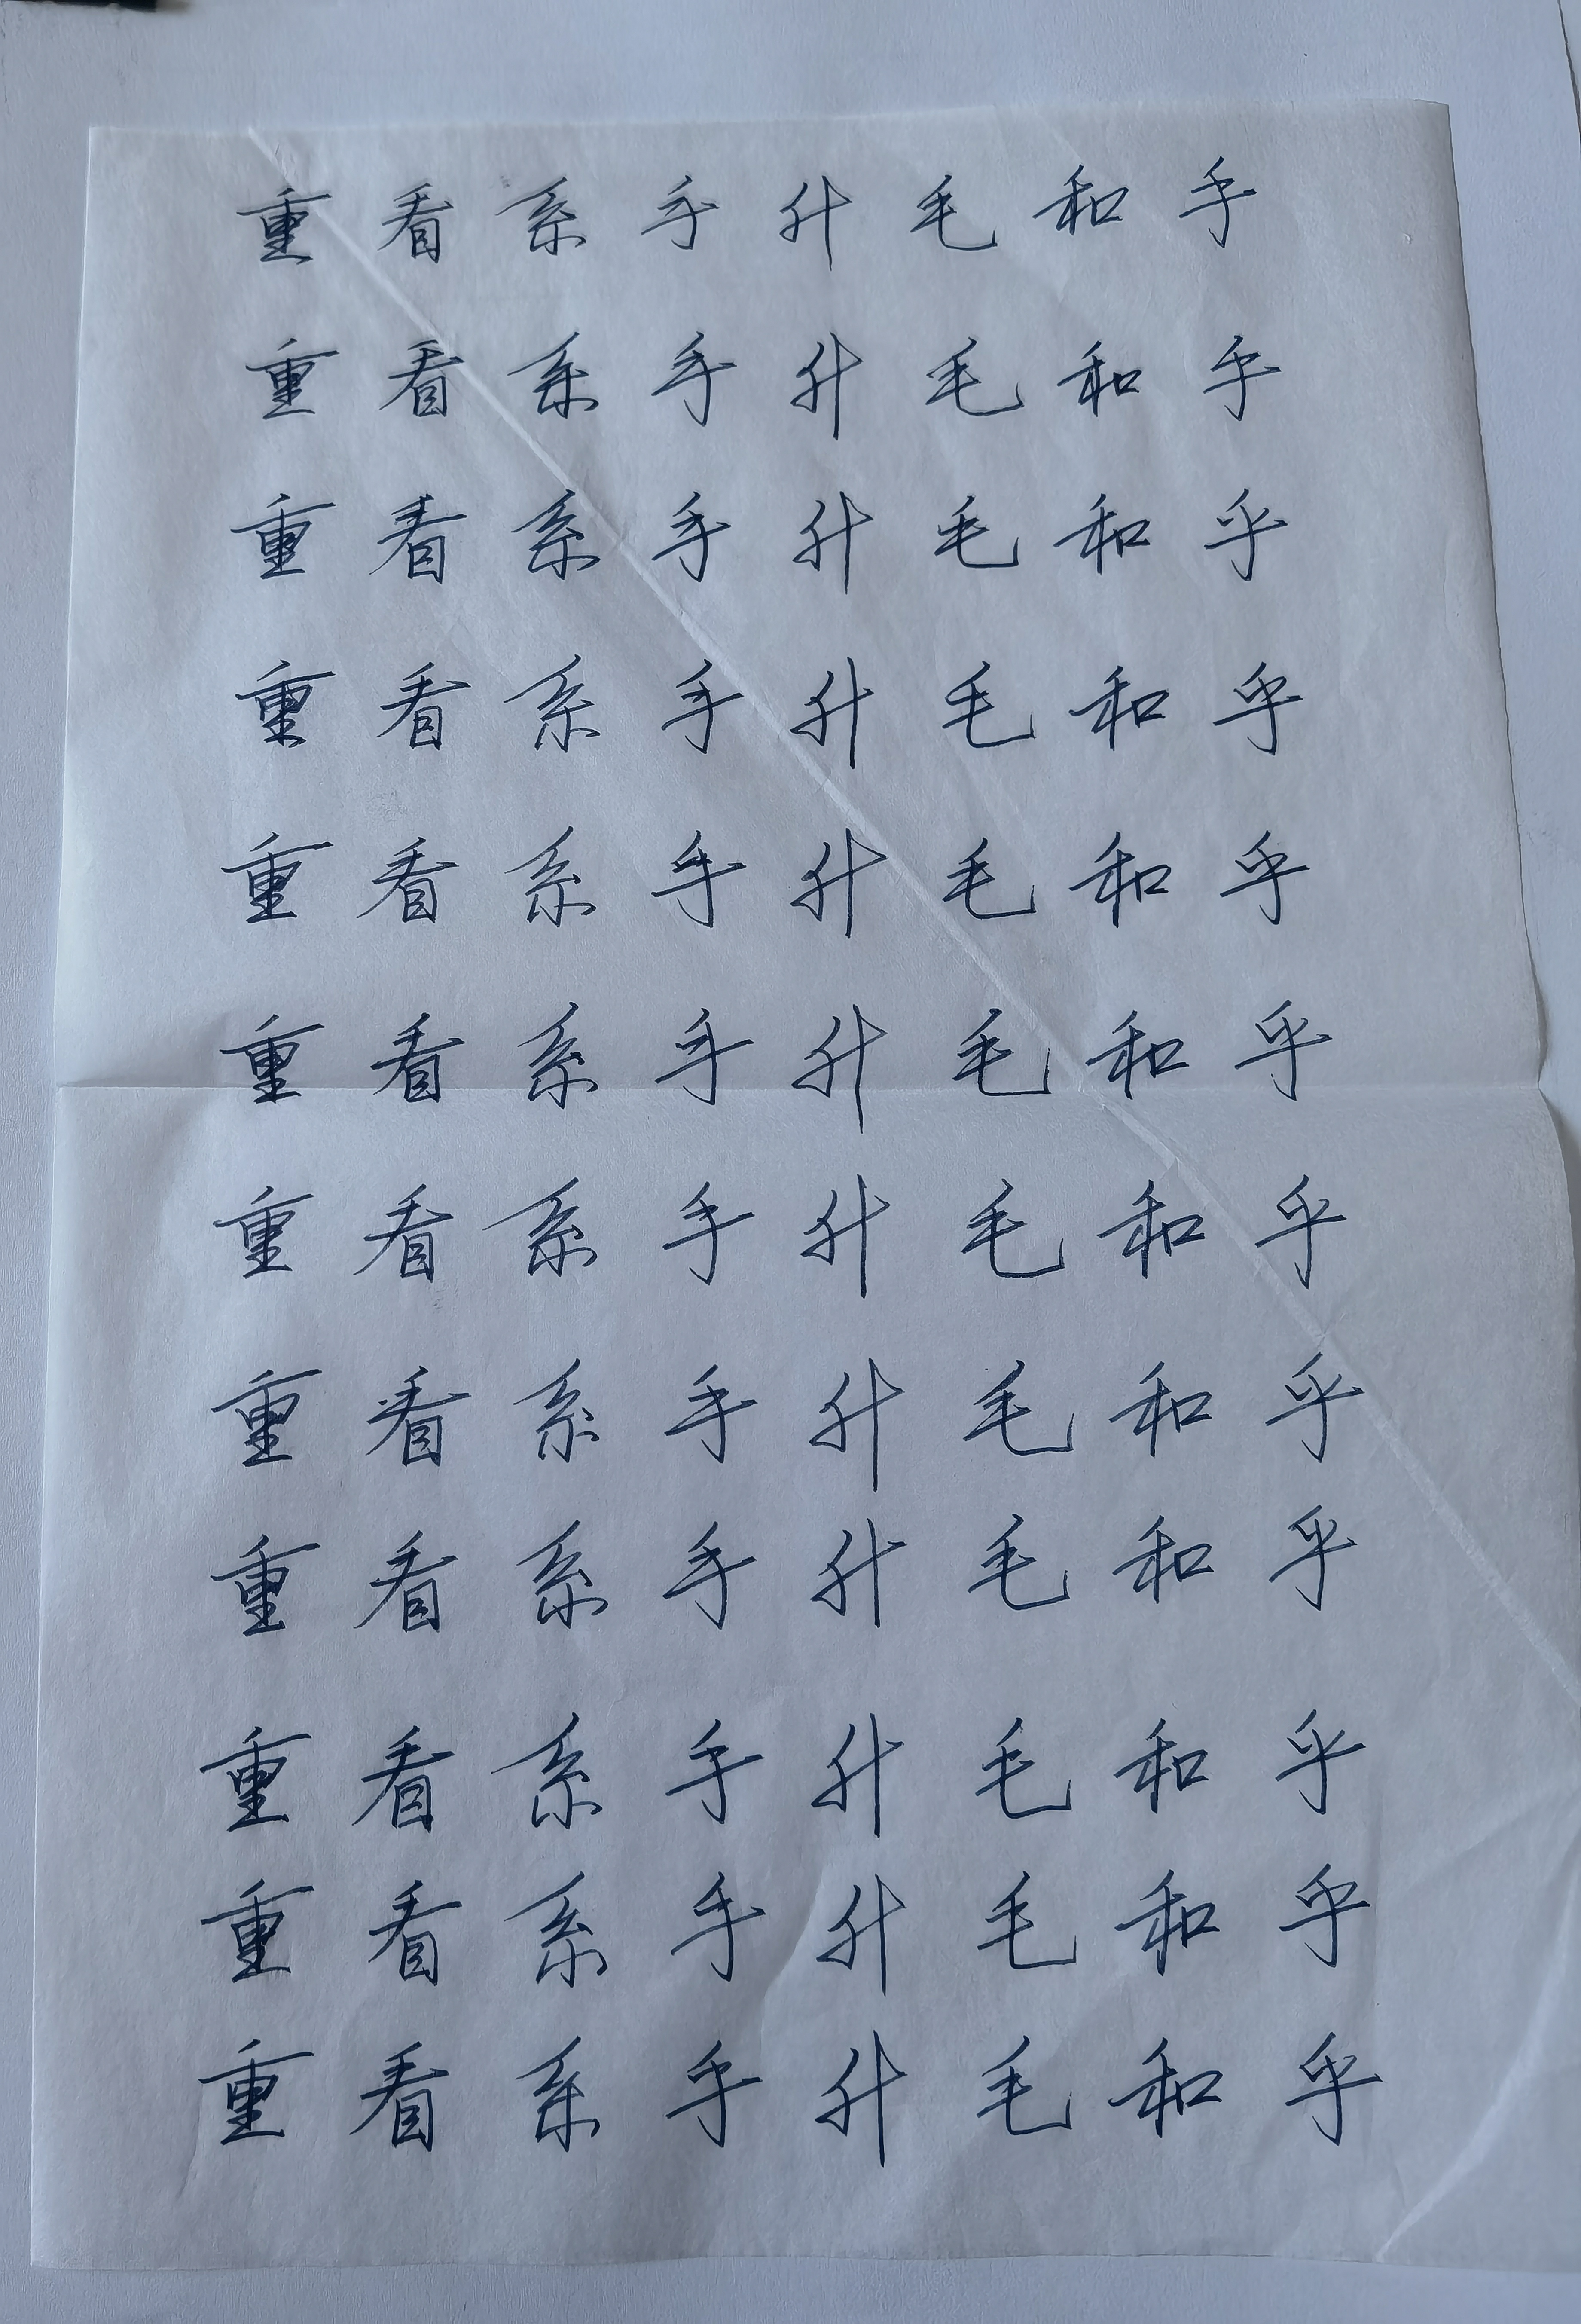 重看系手升毛和乎
重看系手升毛和乎
重看系手升毛和乎
重看系手升毛和乎
重看系手升毛和乎
重看系手升毛和乎
重看系手升毛和乎
重看系手升毛和乎
重看系手升毛和乎
重看系手升毛和乎
重看系手升毛和乎
重看系手升毛和乎